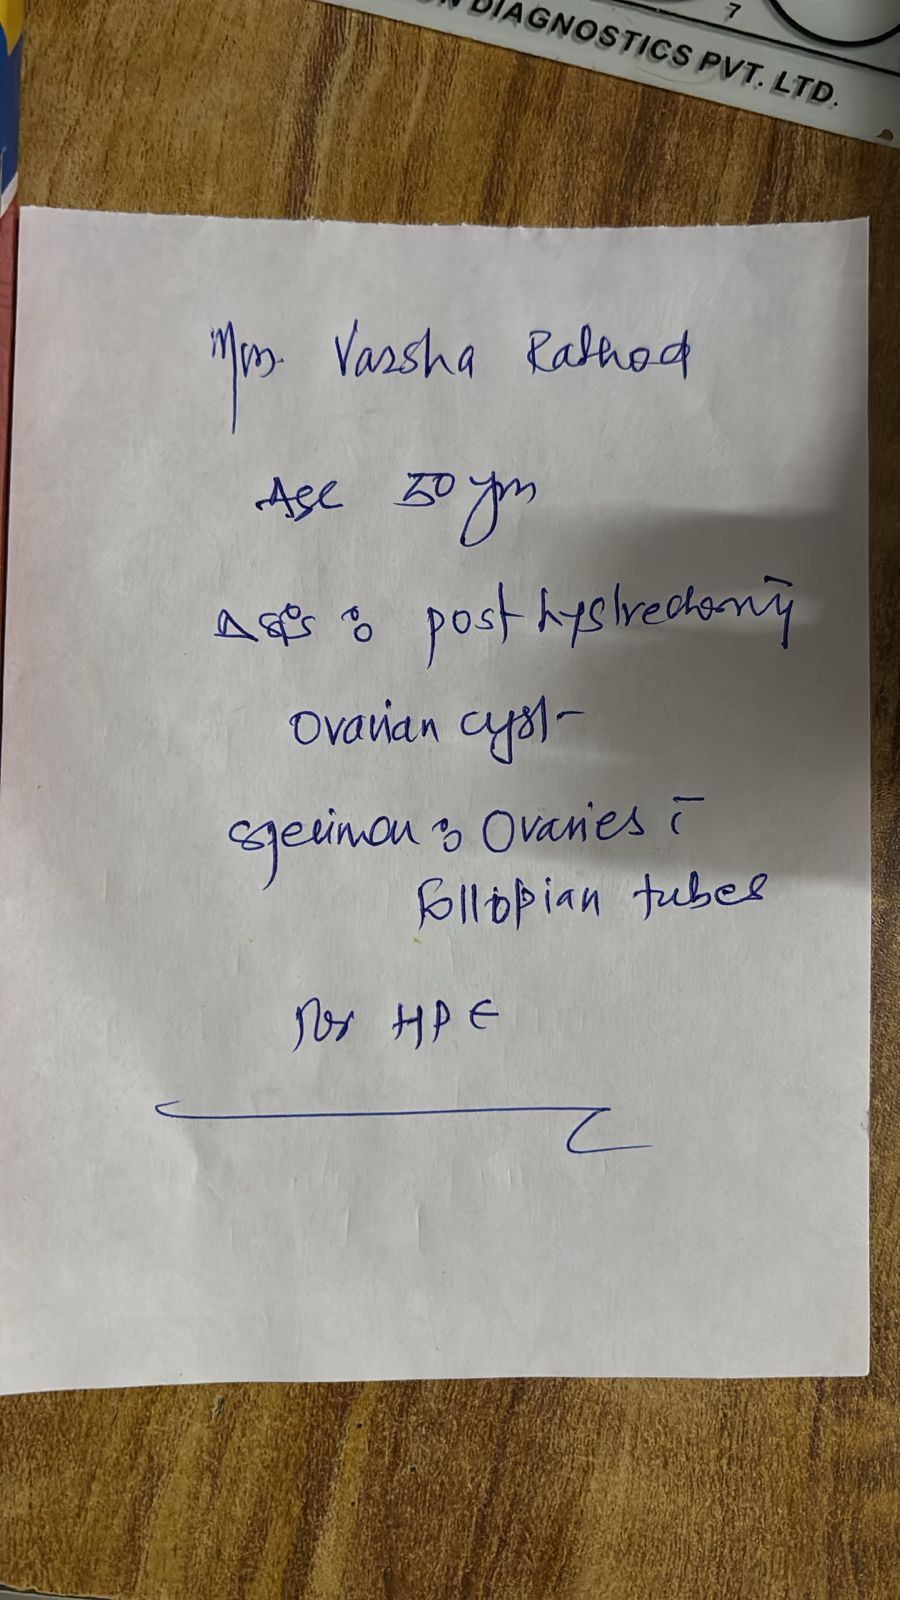 7
N DIAGNOSTICS PVT. LTD.
Mrs. Varsha Rathod
Age 50 yrs
post hystrectomy
Ovarian cyst
Specimen : Ovaries c̄
Follopian tubes
for HPE